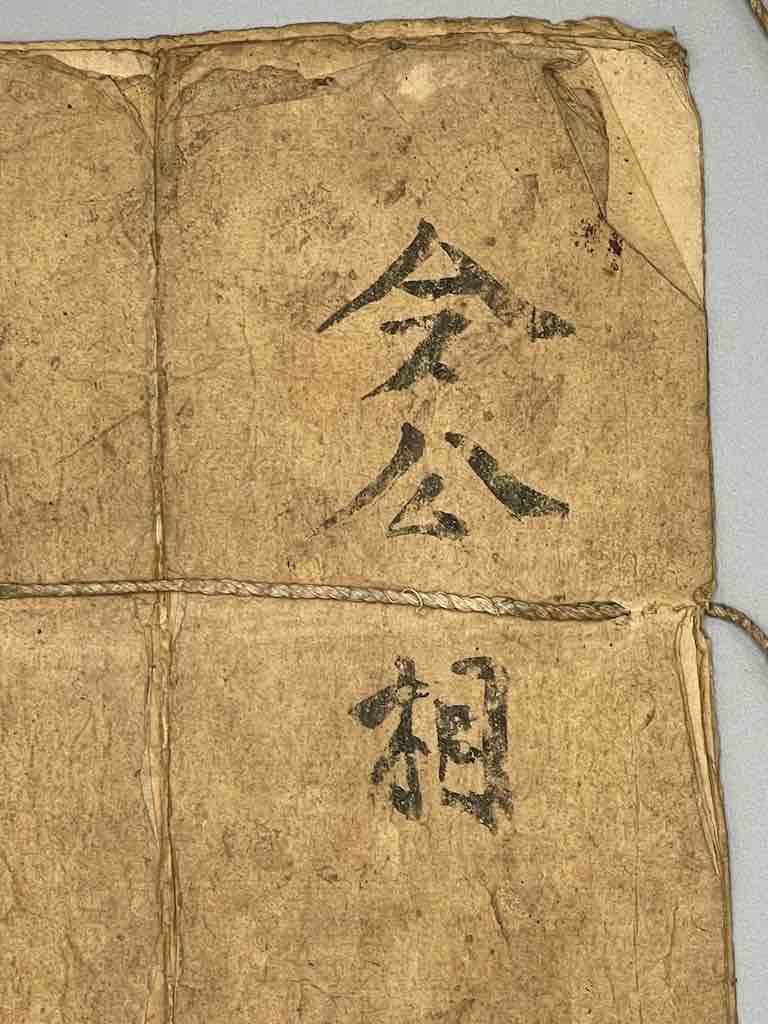 令公相